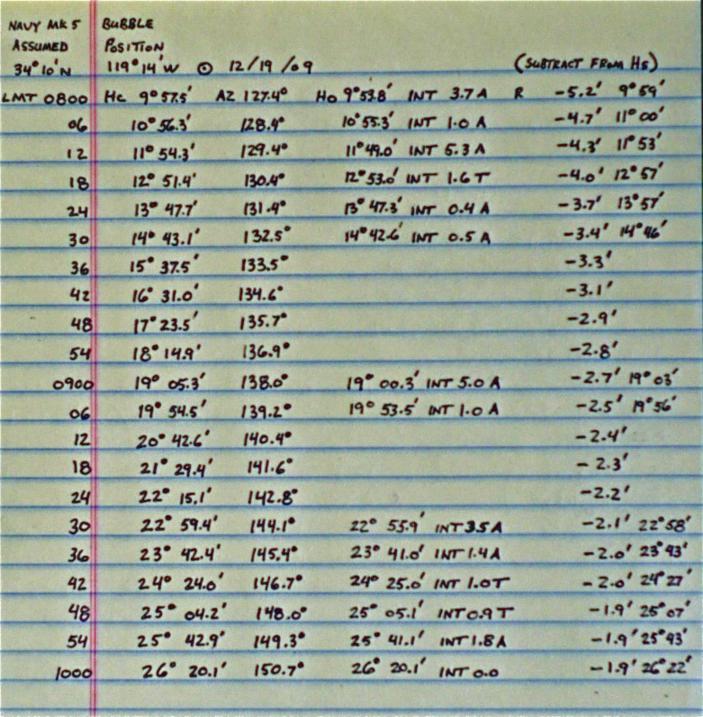 NAVY MK 5 BUBBLE
ASSUMED POSITION
34° 10' N 119° 14' W ☉ 12/19/09 (SUBTRACT FROM Hs)
LMT 0800 Hc 9° 57.5' AZ 127.4° Ho 9° 53.8' INT 3.7 A R -5.2' 9° 59'
06 10° 56.3' 128.4° 10° 55.3' INT 1.0 A -4.7' 11° 00'
12 11° 54.3' 129.4° 11° 49.0' INT 5.3 A -4.3' 11° 53'
18 12° 51.4' 130.4° 12° 53.0' INT 1.6 T -4.0' 12° 57'
24 13° 47.7' 131.4° 13° 47.3' INT 0.4 A -3.7' 13° 51'
30 14° 43.1' 132.5° 14° 42.6' INT 0.5 A -3.4' 14° 46'
36 15° 37.5' 133.5° -3.3'
42 16° 31.0' 134.6° -3.1'
48 17° 23.5' 135.7° -2.9'
54 18° 14.9' 136.9° -2.8'
0900 19° 05.3' 138.0° 19° 00.3' INT 5.0 A -2.7' 19° 03'
06 19° 54.5' 139.2° 19° 53.5' INT 1.0 A -2.5' 19° 56'
12 20° 42.6' 140.4° -2.4'
18 21° 29.4' 141.6° -2.3'
24 22° 15.1' 142.8° -2.2'
30 22° 59.4' 144.1° 22° 55.9' INT 3.5 A -2.1' 22° 58'
36 23° 42.4' 145.4° 23° 41.0' INT 1.4 A -2.0' 23° 43'
42 24° 24.0' 146.7° 24° 25.0' INT 1.0 T -2.0' 24° 27'
48 25° 04.2' 148.0° 25° 05.1' INT 0.9 T -1.9' 25° 07'
54 25° 42.9' 149.3° 25° 41.1' INT 1.8 A -1.9' 25° 43'
1000 26° 20.1' 150.7° 26° 20.1' INT 0.0 -1.9' 26° 22'